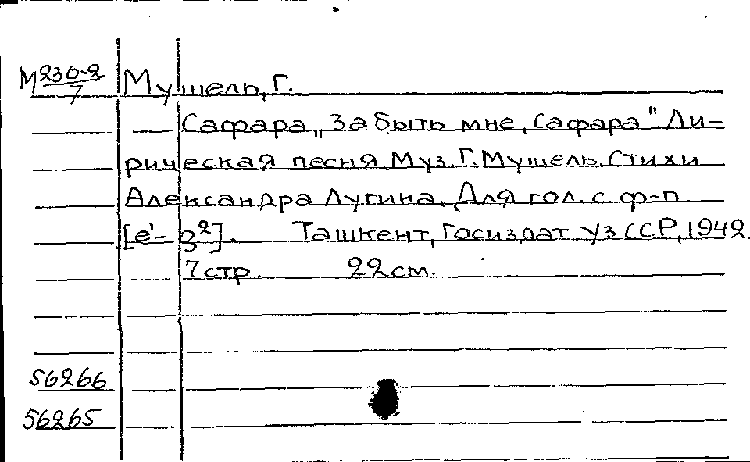 М 230-2/7 Мушель, Г.
— Сафара „Забыть мне, Сафара" Ли-
рическая песня Муз. Г. Мушель. Стихи
Александра Лугина. Для гол. с ф-п.
[e'- g²]. Ташкент, Госиздат УзССР, 1942
7 стр. 22 см.
56266
56265